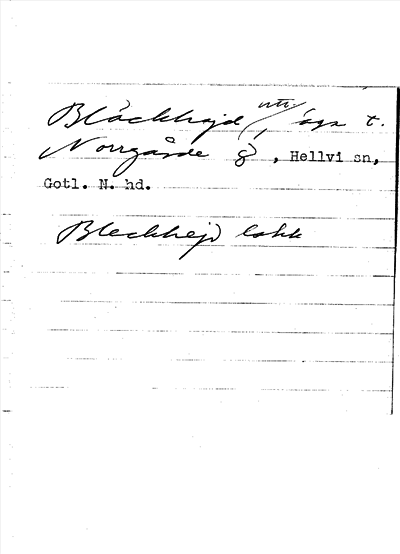 Bläckhajd, utt, ägo t.
Norrgårde 8, Hellvi sn,
Gotl. N. hd.
Bleckhejd lokk